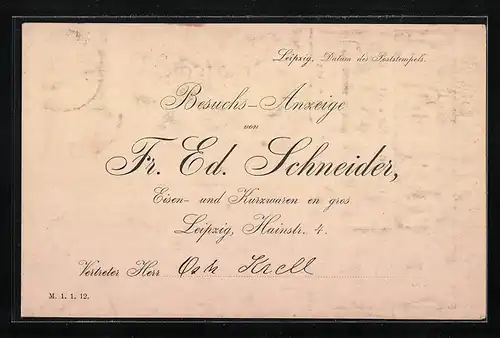 Leipzig, Datum des Poststempels.
Besuchs-Anzeige
von
Fr. Ed. Schneider,
Eisen- und Kurzwaren en gros
Leipzig, Hainstr. 4.
Vertreter Herr Krell
M. 1. 1. 12.